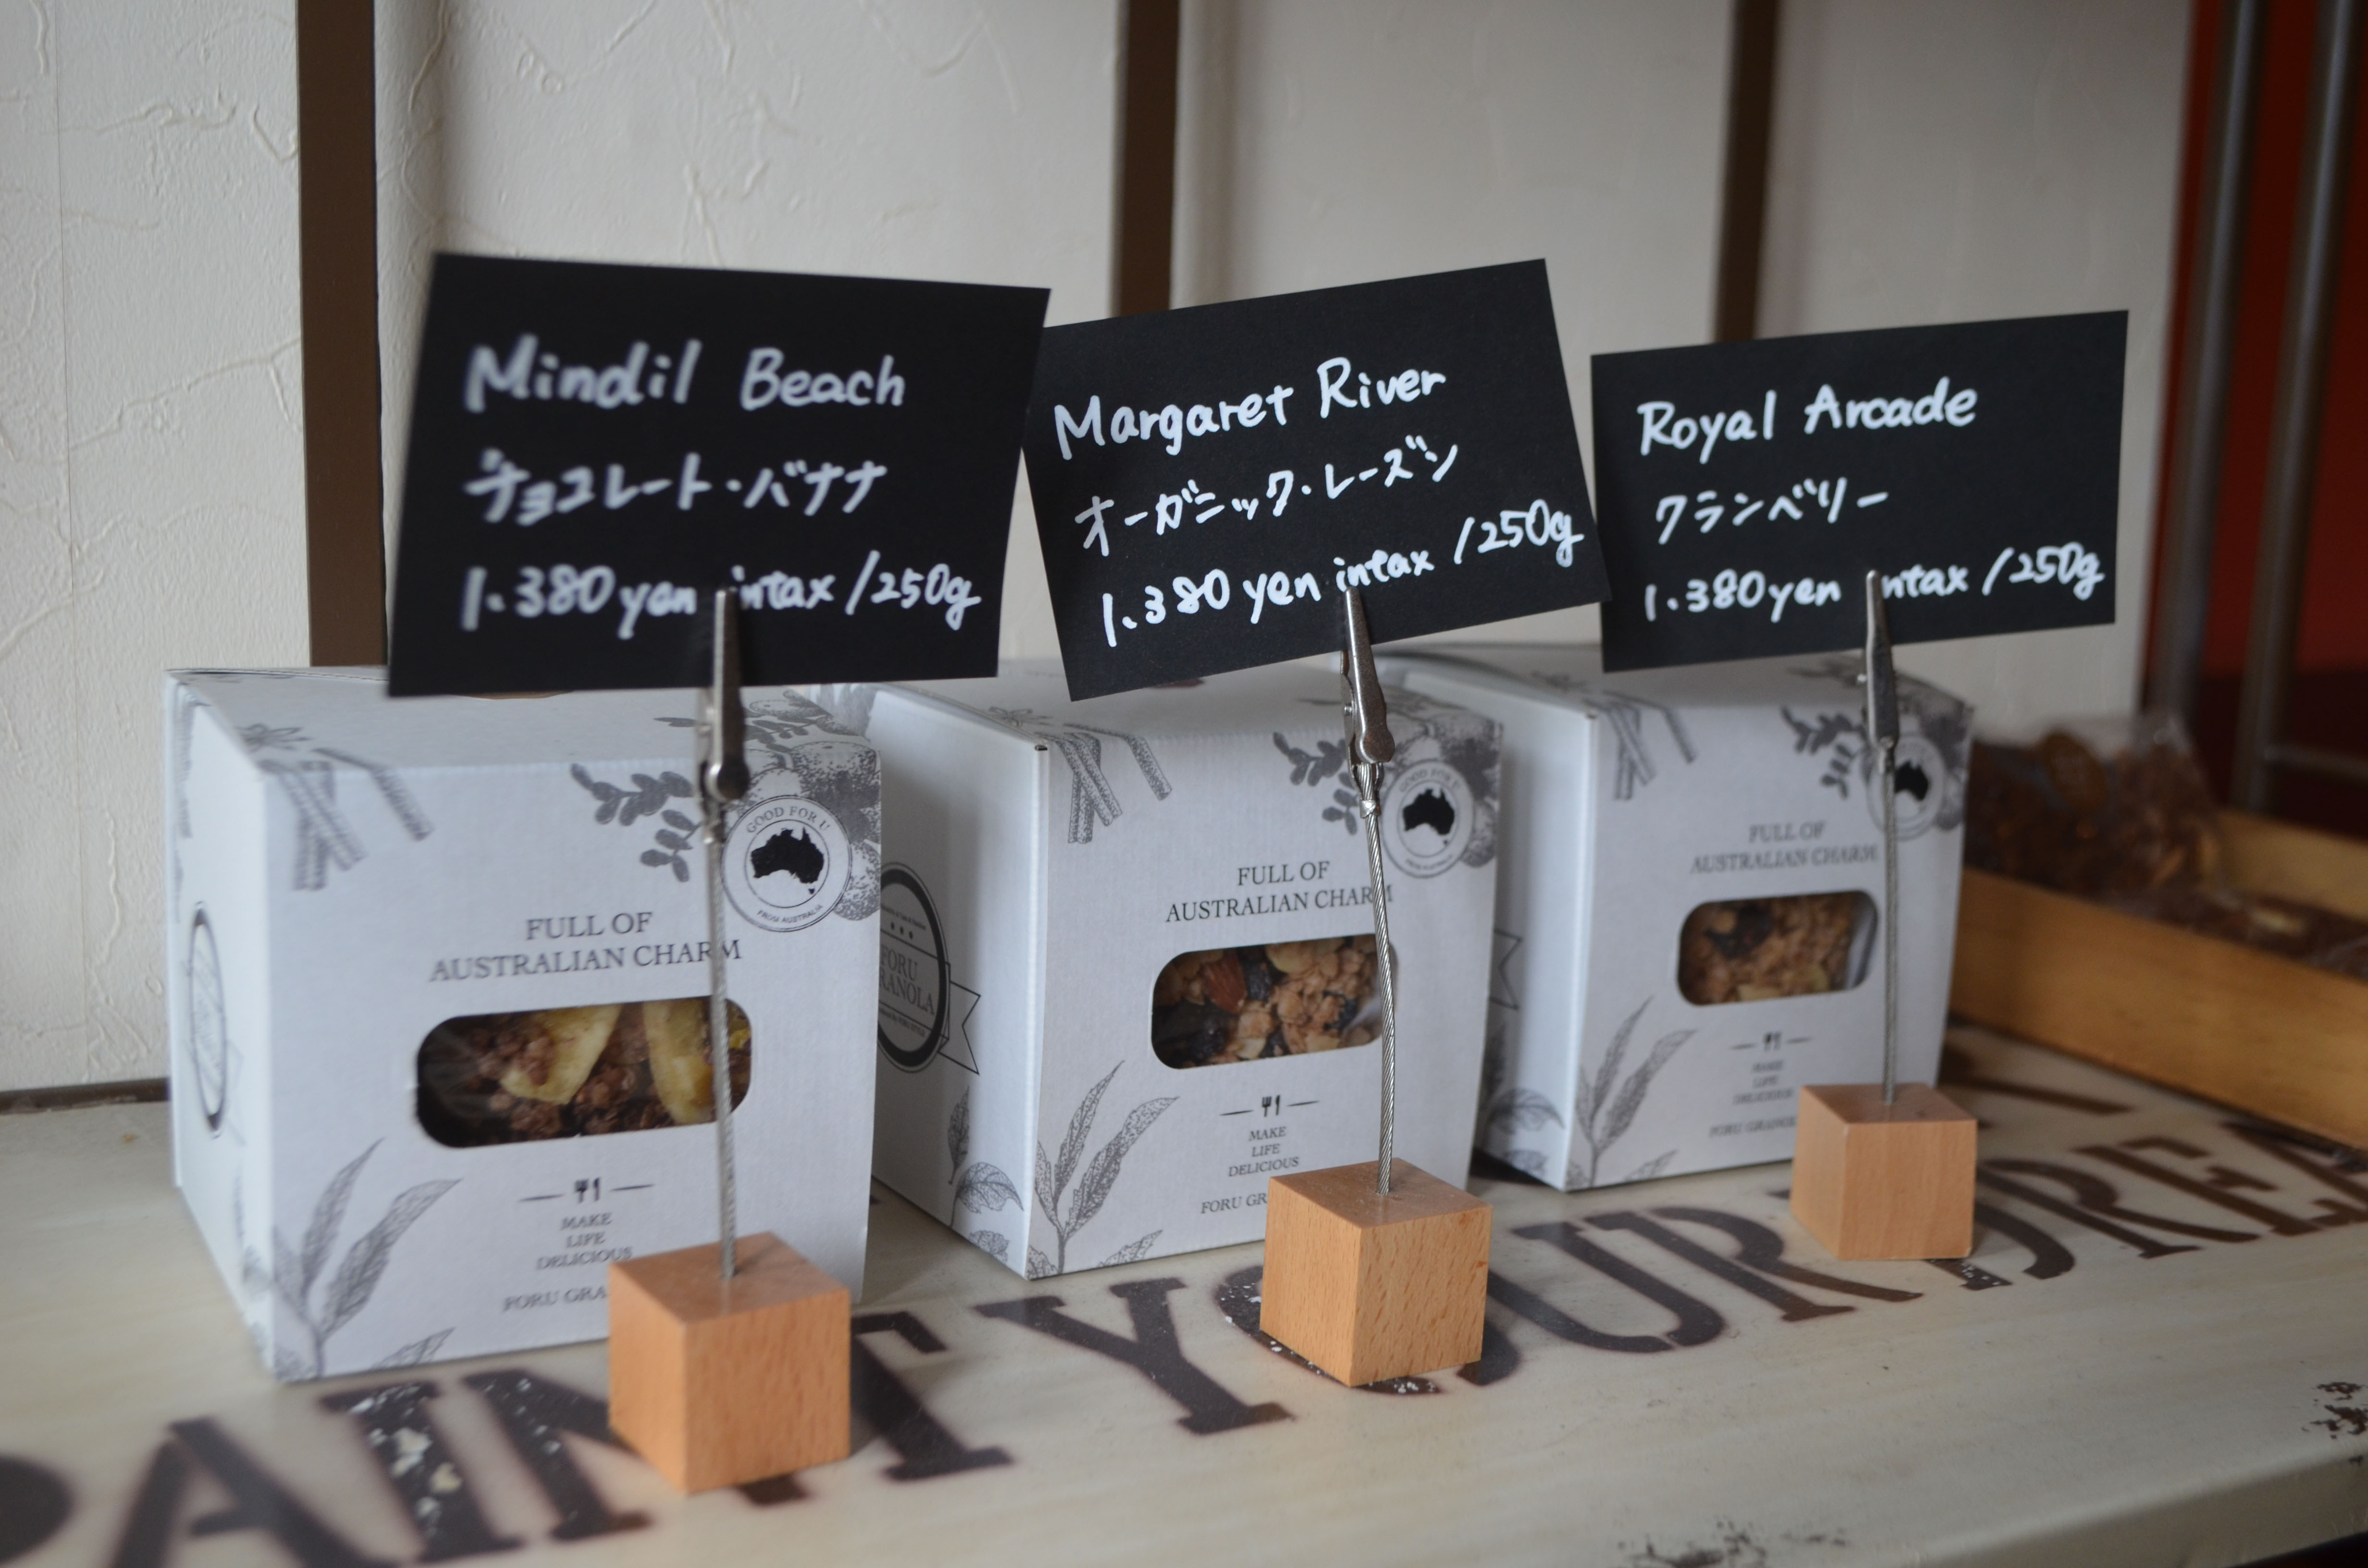 Mindil Beach
チョコレート・バナナ
1.380yen intax /250g
Margaret River
オーガニック・レーズン
1.380 yen intax /250g
Royal Arcade
クランベリー
1.380yen intax /250g
GOOD FOR U
FROM AUSTRALIA
FULL OF
AUSTRALIAN CHARM
MAKE
LIFE
DELICIOUS
FORU GRA
FORU
GRANOLA
GOOD FOR U
FULL OF
AUSTRALIAN CHARM
MAKE
LIFE
DELICIOUS
FORU GR
FULL OF
AUSTRALIAN CHARM
MAKE
LIFE
DELICIOUS
FORU GRANO
PAINT YOUR DREA